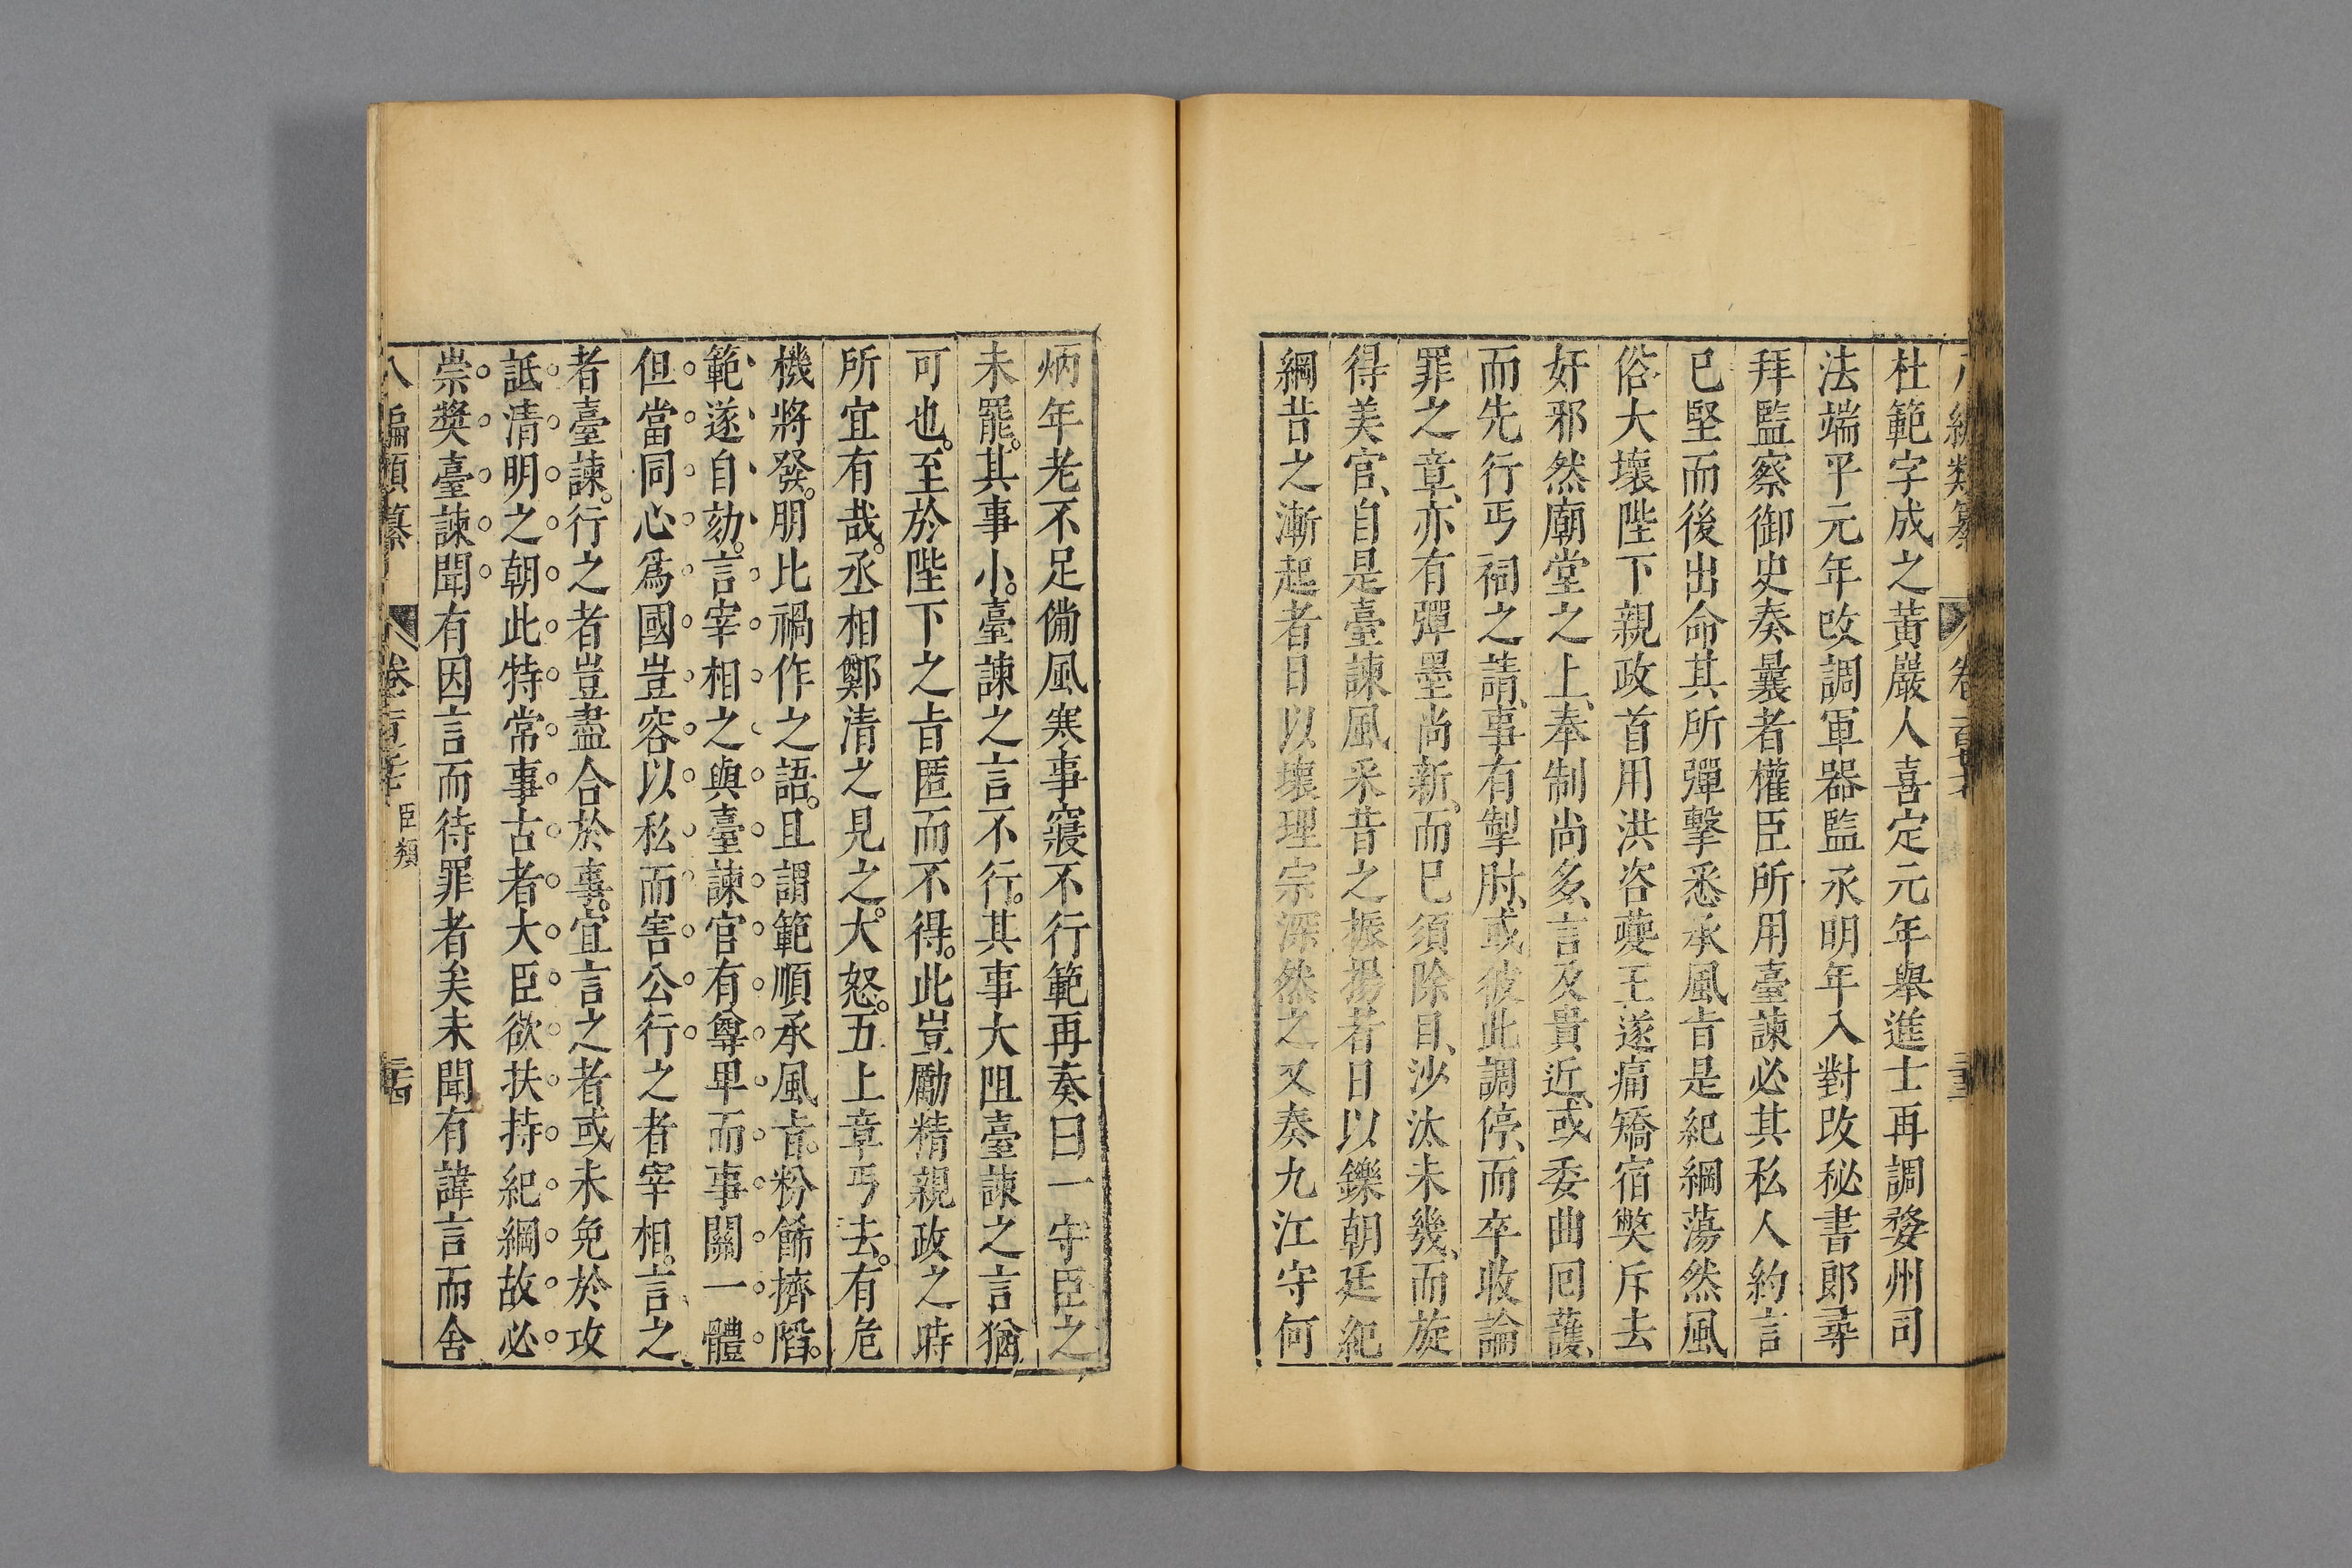 杜範字成之黃巖人喜定元年舉進士再調婺州司
法端平元年改調軍器監丞明年入對改秘書郎尋
拜監察御史奏曩者權臣所用臺諫必其私人約言
已堅而後出命其所彈擊悉承風旨是紀綱蕩然風
俗大壞陛下親政首用洪咨夔王遂痛矯宿獘斥去
奸邪然廟堂之上、奉制尚多、言及貴近、或委曲囘護、
而先行丐祠之請、事有掣肘、或彼此調停、而卒收論
罪之章、亦有彈墨尚新。而巳須除目、沙汰未幾、而旋
得美官、自是臺諫風采昔之振揚者日以鑠朝廷紀
綱昔之漸起者日以壞理宗深然之又奏九江守何
炳年老不足備風寒事寢不行範再奏曰一守臣之
未罷。其事小。臺諫之言不行。其事大阻臺諫之言猶
可也。至於陛下之旨匿而不得。此豈勵精親政之時
所宜有哉。丞相鄭清之見之。大怒。五上章丐去。有危
機將發。朋比禍作之語。且謂範順承風旨。粉餙擠陷。
範、遂、自、劾。言宰相之與臺諫官有尊卑而事關一體
但當同心爲國豈容以私而害公行之者宰相。言之
者臺諫。行之者豈盡合於事。宜言之者或未免於攻
詆清明之朝此特常事古者大臣欲扶持紀綱故必
崇獎臺諫聞有因言而待罪者矣未聞有諱言而舍
八編類纂 卷 臣類